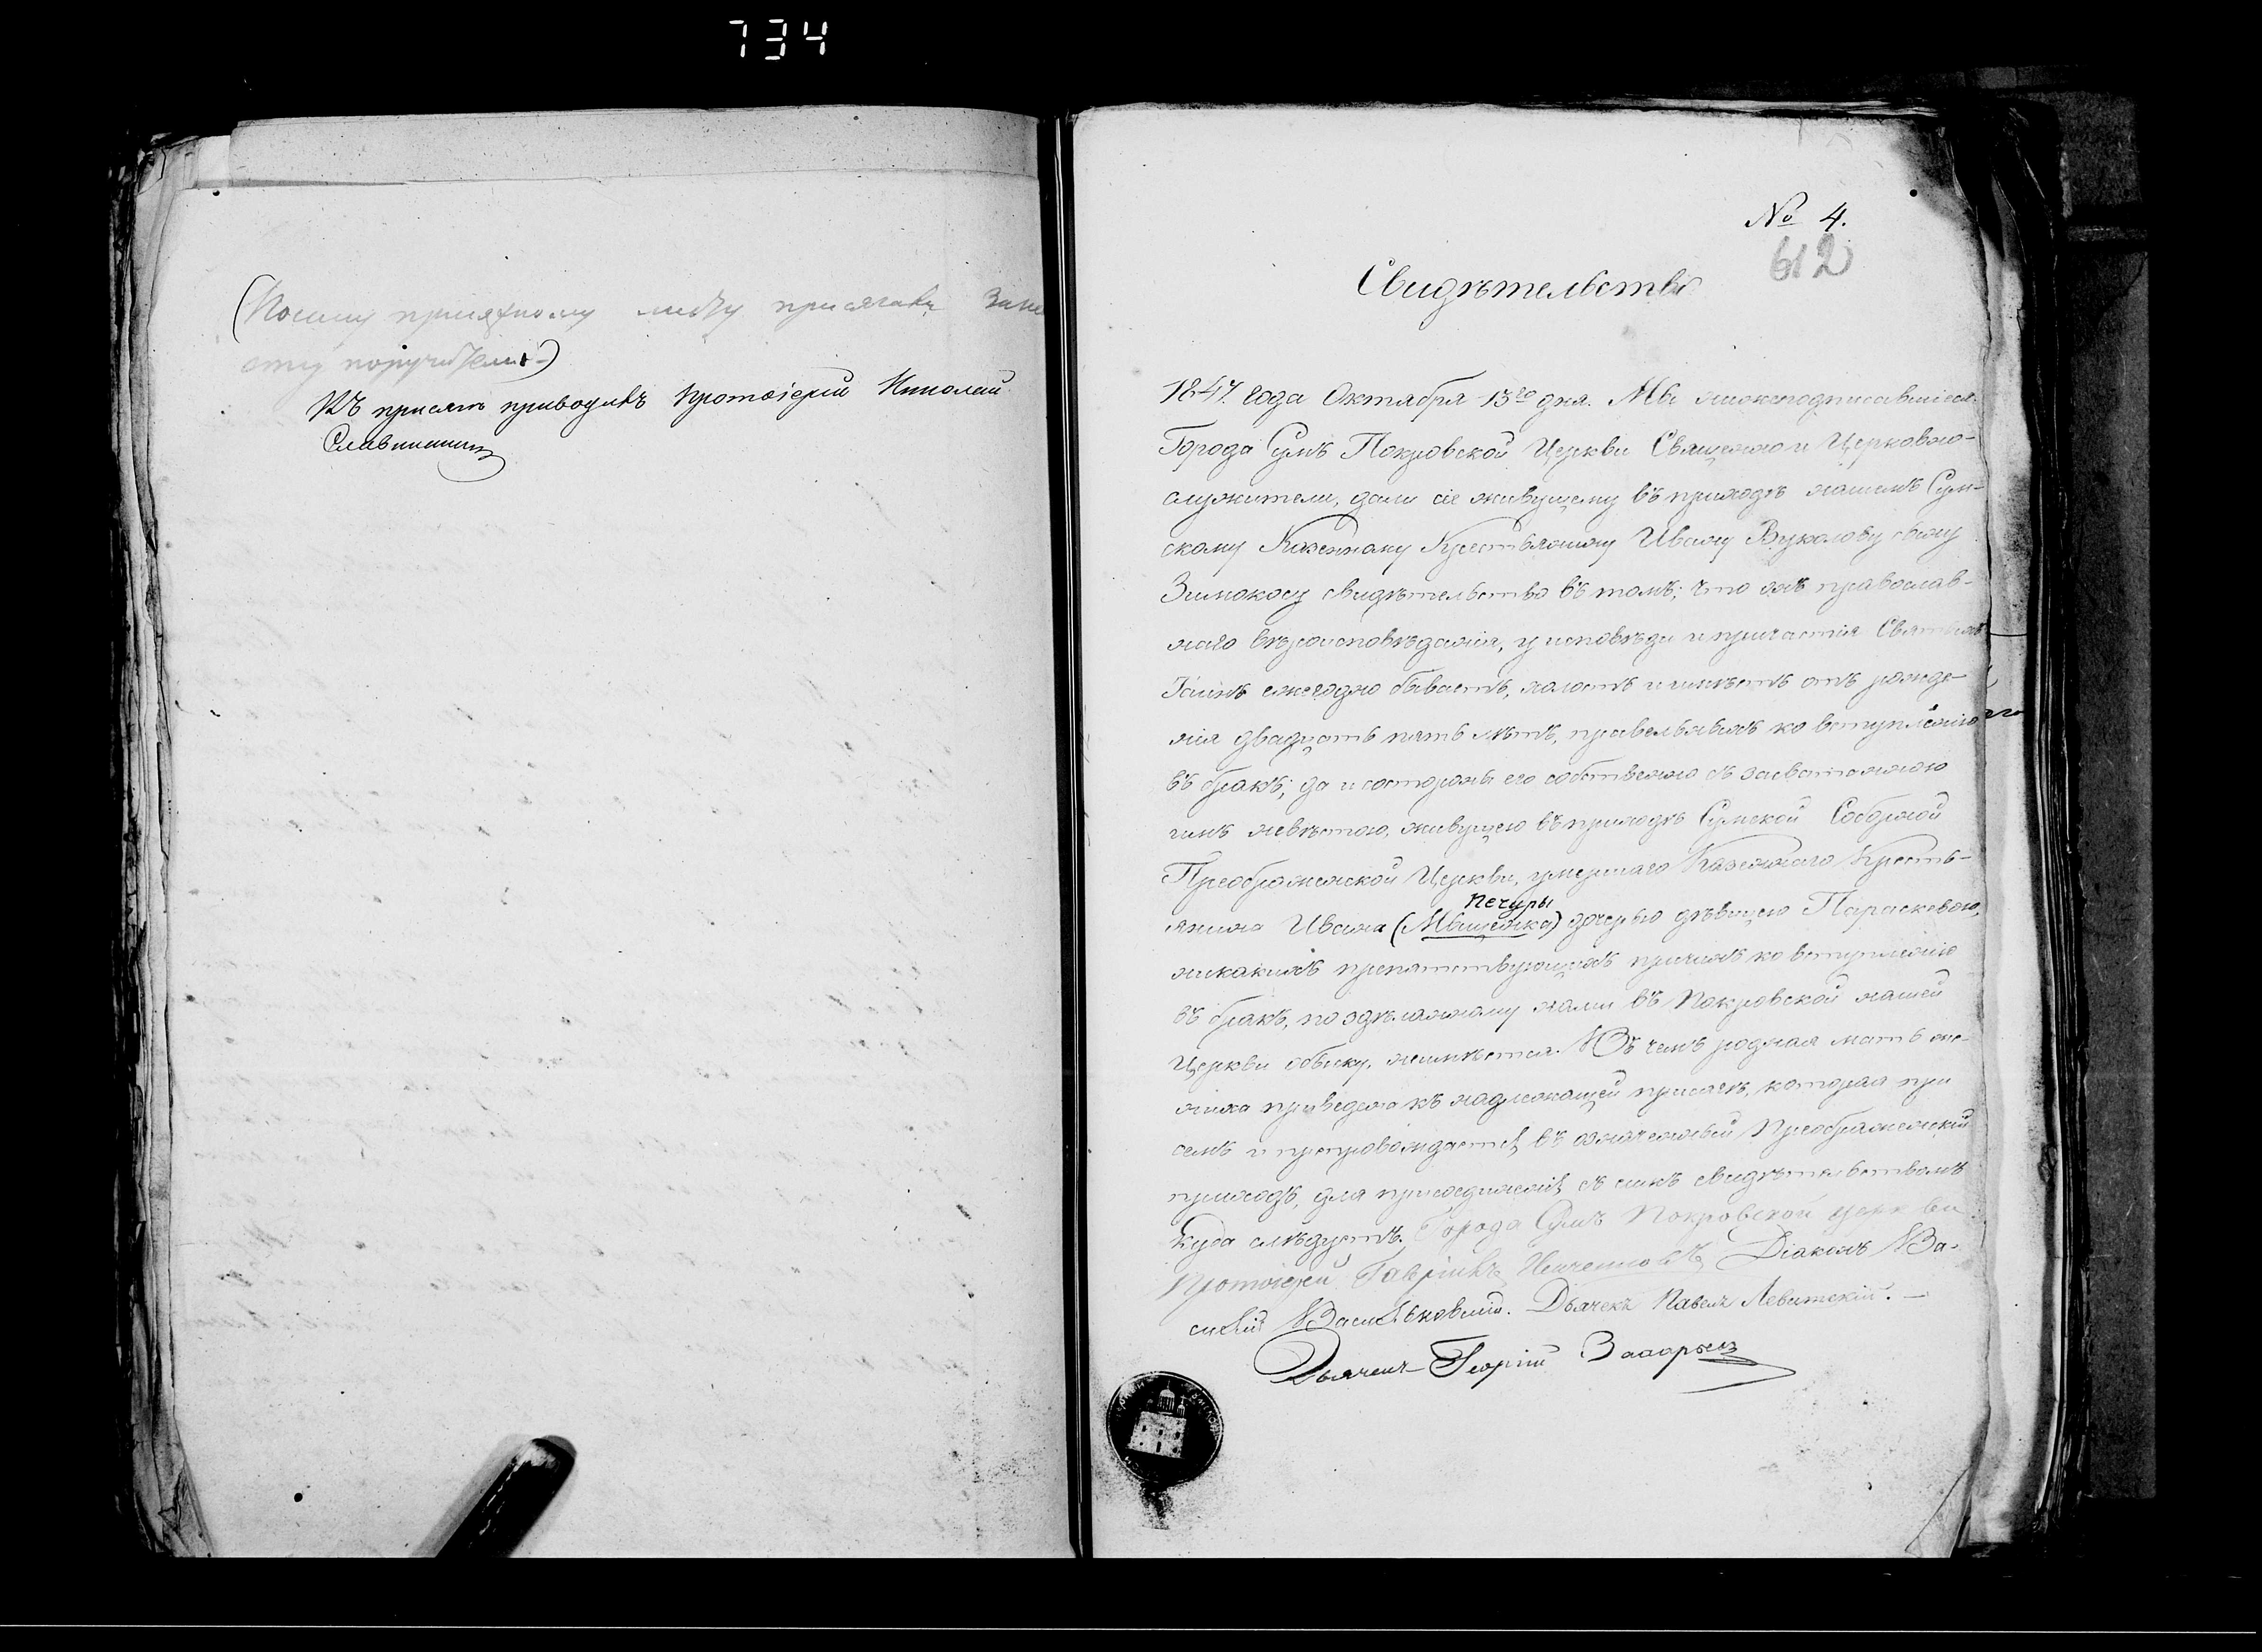 734
(По сему присяжному листу присягали
К присяге приводилъ Протоіерей Николай
№ 4.
612
Свидѣтельство
1847. года Октября 13го дня. Мы нижеподписавшіеся
Города Сумъ Покровской Церкви Священно и Церковно-
служители, дали сіе живущему въ приходѣ нашемъ Сум-
скому Казенному Крестьянину Ивану Вуколову сыну
Зинокосу свидѣтельство въ томъ; что онъ православ-
наго вѣроисповѣданія, у исповѣди и причастія Святыхъ
Таинъ ежегодно бываетъ, холостъ и имѣетъ отъ рожде-
нія двадцать пять лѣтъ, ко вступленію
въ бракъ; да и состороны его собственно съ засватанною
имъ невѣстою, живущею въ приходѣ Сумской Соборной
Преображенской Церкви, умершаго Казеннаго Кресть-
Печуры
янина Ивана (Иващенка) дочерью дѣвицею Параскевою,
никакихъ препятствующихъ причинъ ко вступленію
въ бракъ, по здѣланному нами въ Покровской нашей
Церкви обыску, неимѣется. Въ чемъ родная мать же-
ниха приведена къ надлежащей присягѣ, которая при
семъ и препровождается въ означенный Преображенскій
приходъ, для присоединенія съ симъ свидѣтельствомъ
куда слѣдуетъ. Города Сумъ Покровской церкви
Протоіерей Гавріилъ Діаконъ Ва-
силій Васильковскій. Дьячекъ Павелъ Левитскій. —
Дьячекъ Георгій